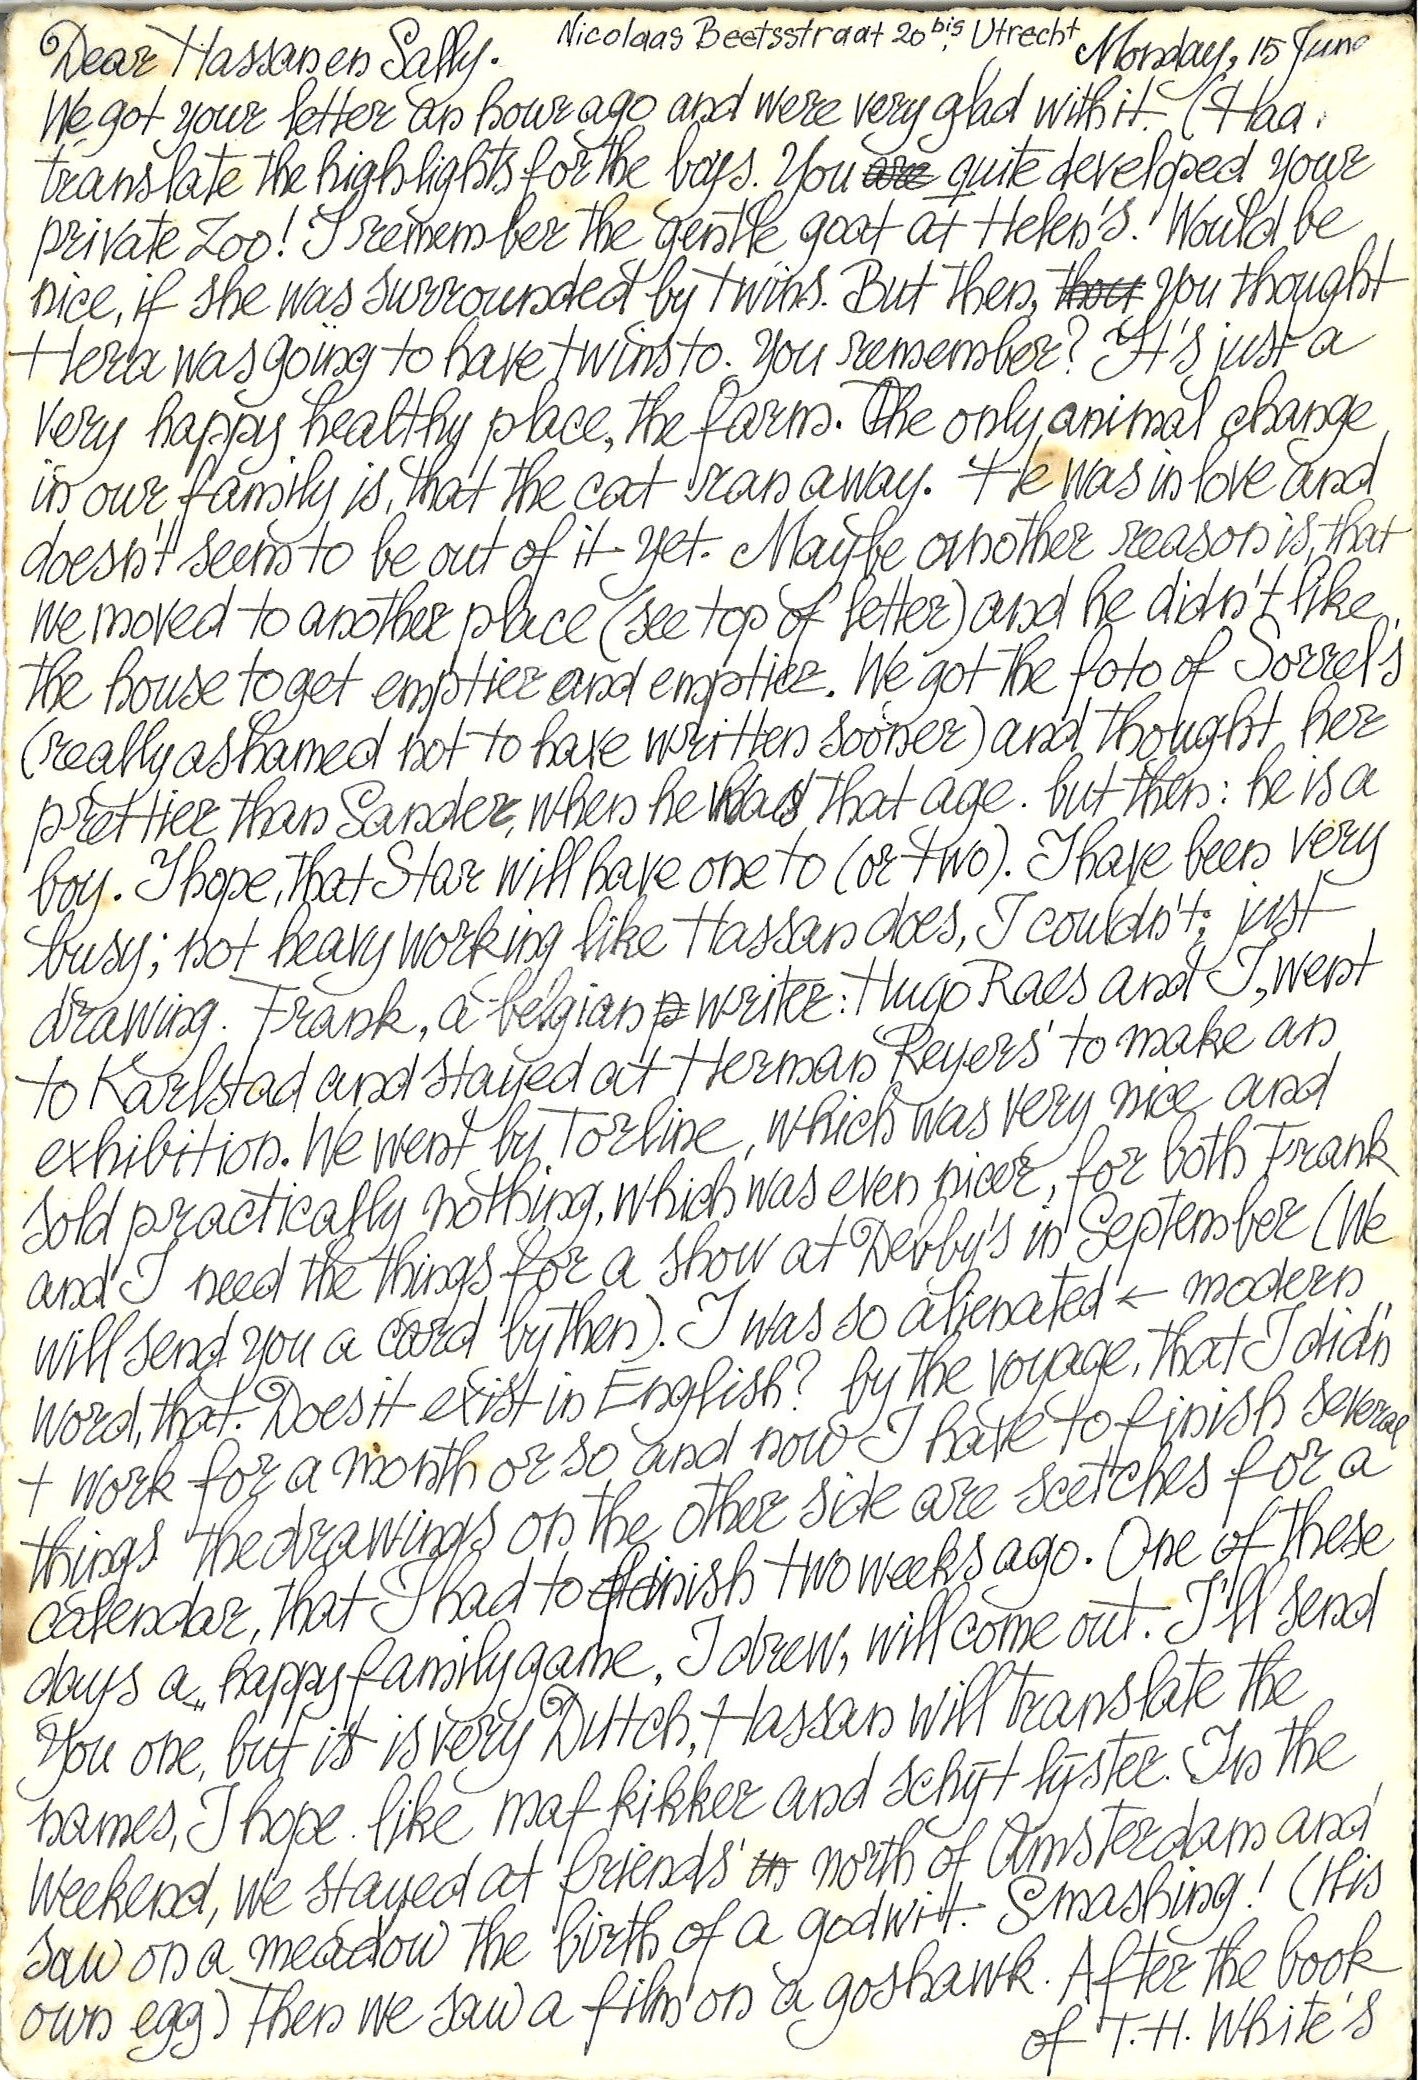 Dear Hassan en Sally. Nicolaas Beetsstraat 20 bis, Utrecht Monday, 15 June
We got your letter an hour ago and were very glad with it. (Haa.
translate the highlights for the boys. You are quite developed your
private Zoo! I remember the gentle goat at Helen's. Would be
nice, if she was surrounded by twins. But then, thou you thought
Hera was going to have twins to. You remember? It's just a
very happy healthy place, the farm. The only animal change
in our family is, that the cat ran away. He was in love and
doesn't seem to be out of it yet. Maybe another reason is, that
we moved to another place (see top of letter) and he didn't like
the house to get emptier and emptier. We got the foto of Sorrel's
(really ashamed not to have written sooner) and thought her
prettier than Sander, when he had that age. but then: he is a
boy. I hope, that Star will have one to (or two). I have been very
busy; not heavy working like Hassan does, I couldn't; just
drawing. Frank, a belgian p writer: Hugo Raes and I, went
to Karlstad and stayed at Herman Reyers' to make an
exhibition. We went by Torline, which was very nice and
sold practically nothing, which was even nicer, for both Frank
and I need the things for a show at Debby's in September (We
will send you a card by then). I was so alienated ← modern
word, that. Does it exist in English? by the voyage, that I didn
t work for a month or so and now I have to finish several
things the drawings on the other side are scetches for a
calendar, that I had to finish two weeks ago. One of these
days a „happy family game, I drew, will come out. I'll send
You one, but it is very Dutch, Hassan will translate the
names, I hope. like maf kikker and schijt lijster. In the
Weekend, we stayed at friends' in north of Amsterdam and
saw on a meadow the birth of a godwit. Smashing! (His
own egg) Then we saw a film on a goshawk. After the book
of T.H. White's